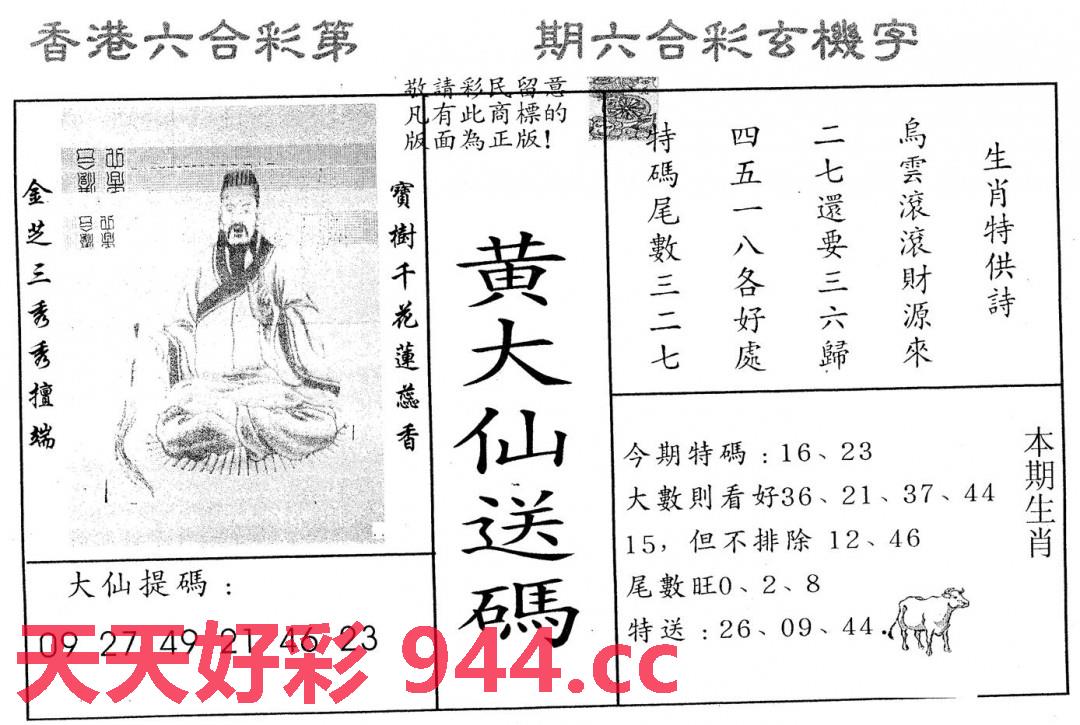 香港六合彩第　期六合彩玄機字
敬請彩民留意
凡有此商標的
版面為正版!
金芝三秀秀擅端
寶樹千花蓮蕊香
黄大仙送碼
生肖特供詩
烏雲滾滾財源來
二七還要三六歸
四五一八各好處
特碼尾數三二七
今期特碼：16、23
大數則看好36、21、37、44
15，但不排除 12、46
尾數旺0、2、8
特送：26、09、44.
本期生肖
大仙提碼：
09 27 49 21 46 23
天天好彩 944.cc